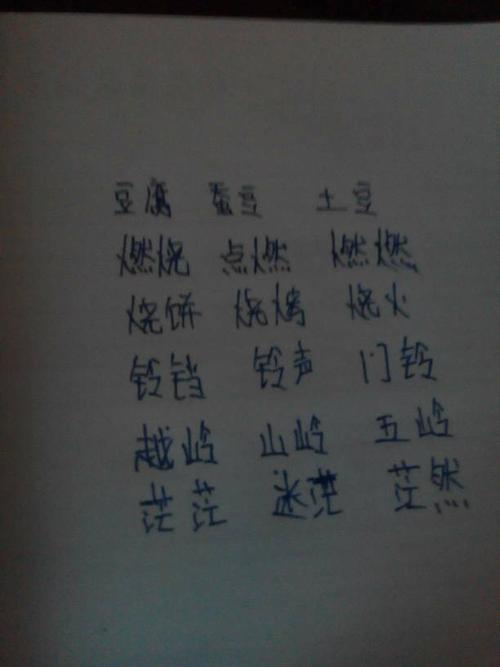 豆腐 蚕豆 土豆
燃烧 点燃 燃燃
烧饼 烧烤 烧火
铃铛 铃声 门铃
越岭 山岭 五岭
茫茫 迷茫 茫然